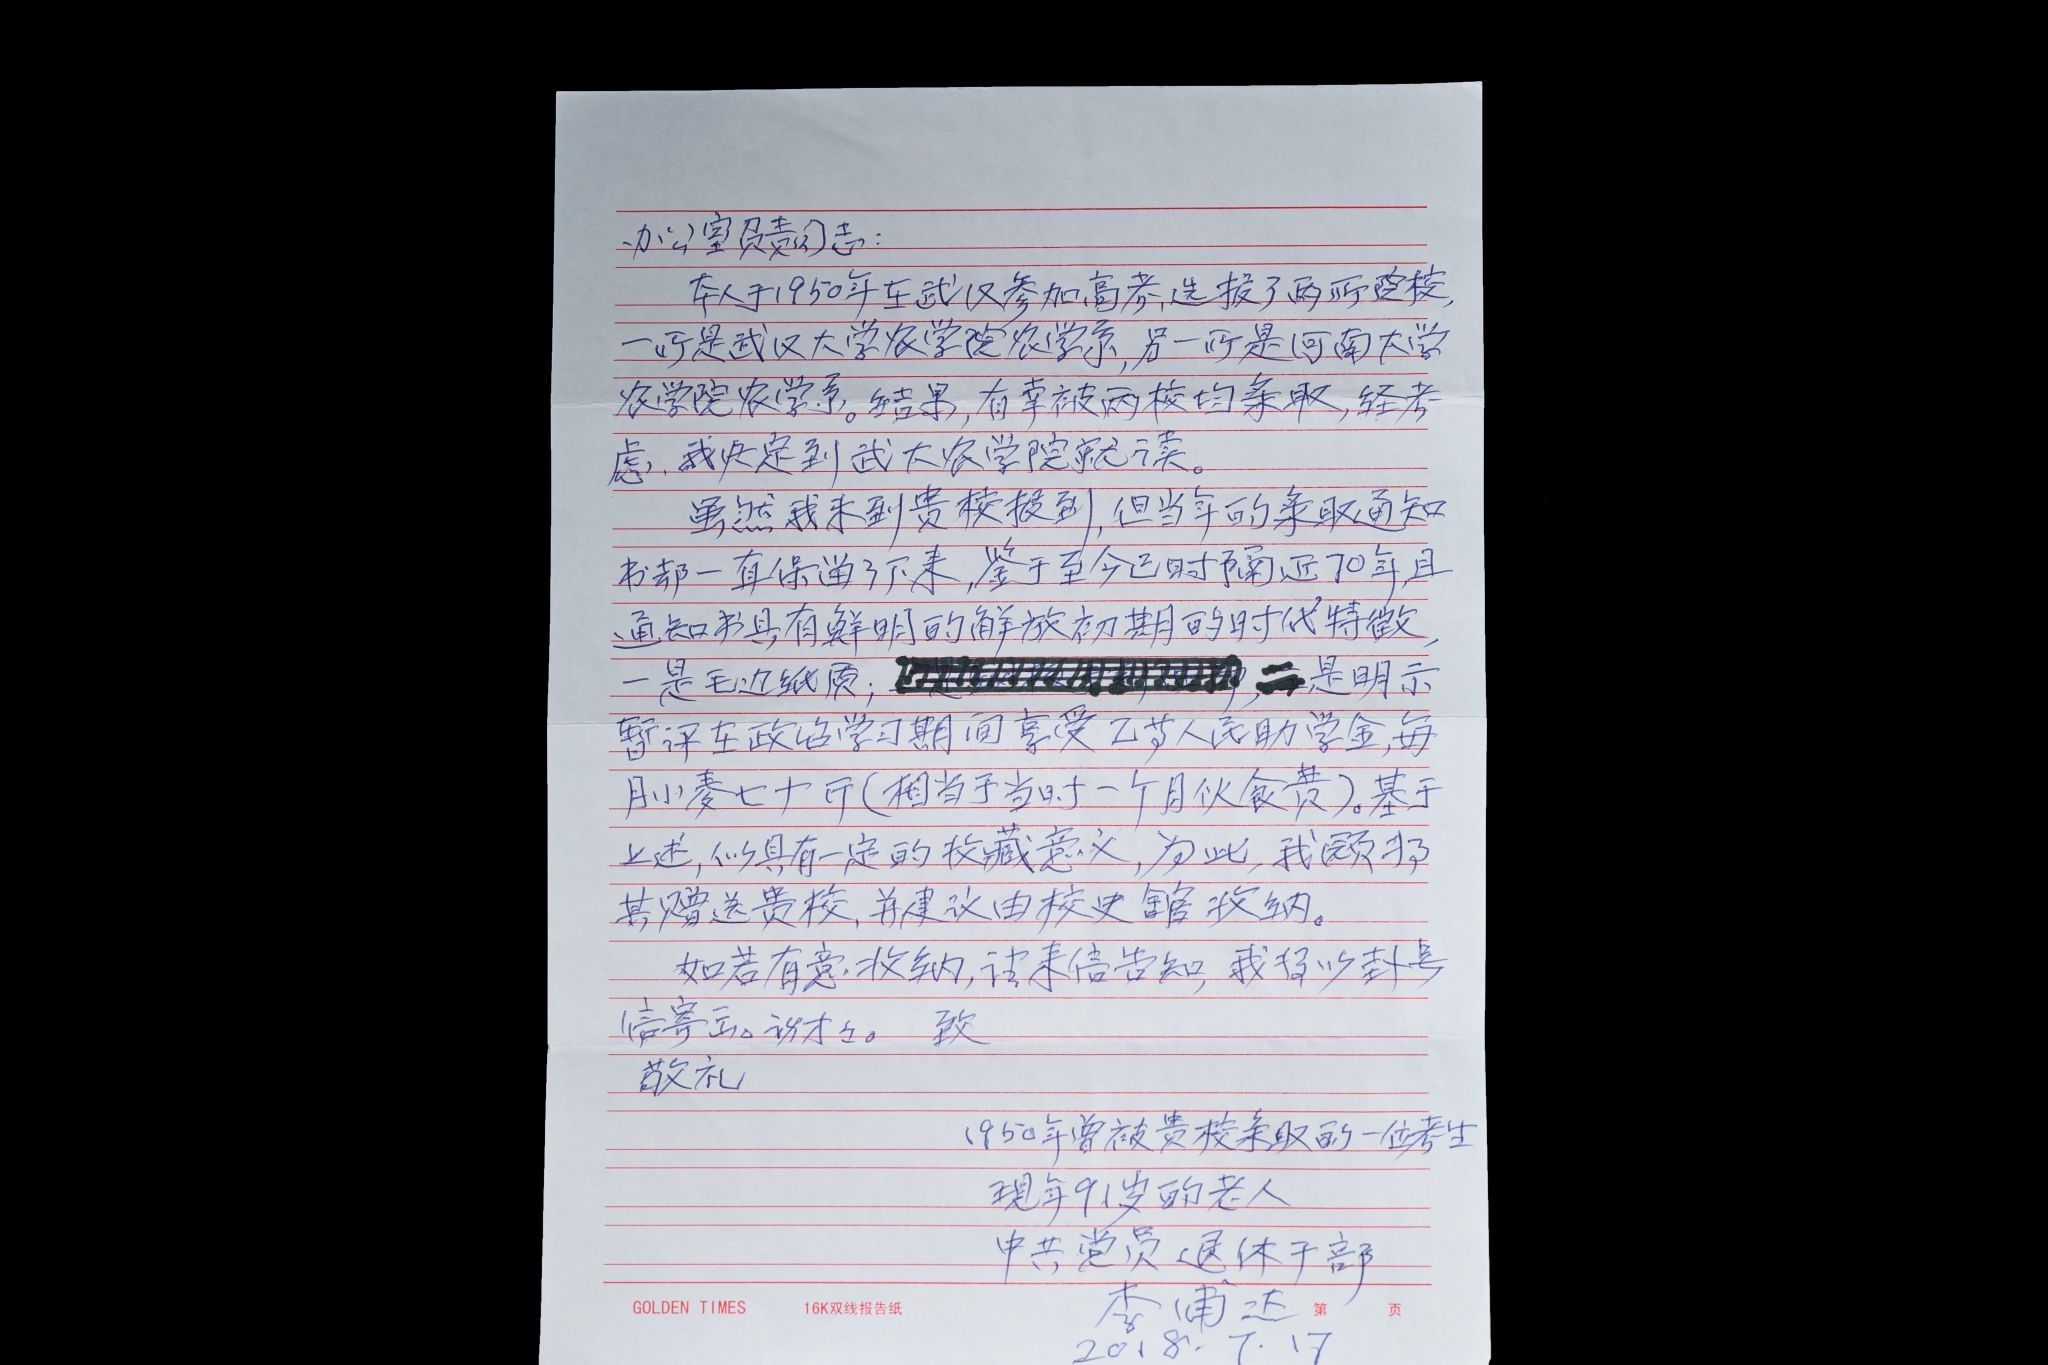 办公室负责同志:
本人于1950年在武汉参加高考,选报了两所院校,
一所是武汉大学农学院农学系,另一所是河南大学
农学院农学系。结果,有幸被两校均录取,经考
虑,我决定到武大农学院就读。
虽然我未到贵校报到,但当年的录取通知
书却一直保留了下来,鉴于至今已时隔近70年,且
通知书具有鲜明的解放初期的时代特徵,
一是毛边纸质;二是明示
暂评在政治学习期间享受乙等人民助学金,每
月小麦七十斤(相当于当时一个月伙食费)。基于
上述,似具有一定的收藏意义,为此,我愿将
其赠送贵校,并建议由校史馆收纳。
如若有意收纳,请来信告知,我将以挂号
信寄去。谢谢。 致
敬礼
1950年曾被贵校录取的一位考生
现年91岁的老人
中共党员 退休干部
李甫达
2018.7.17
GOLDEN TIMES 16K双线报告纸 第 页